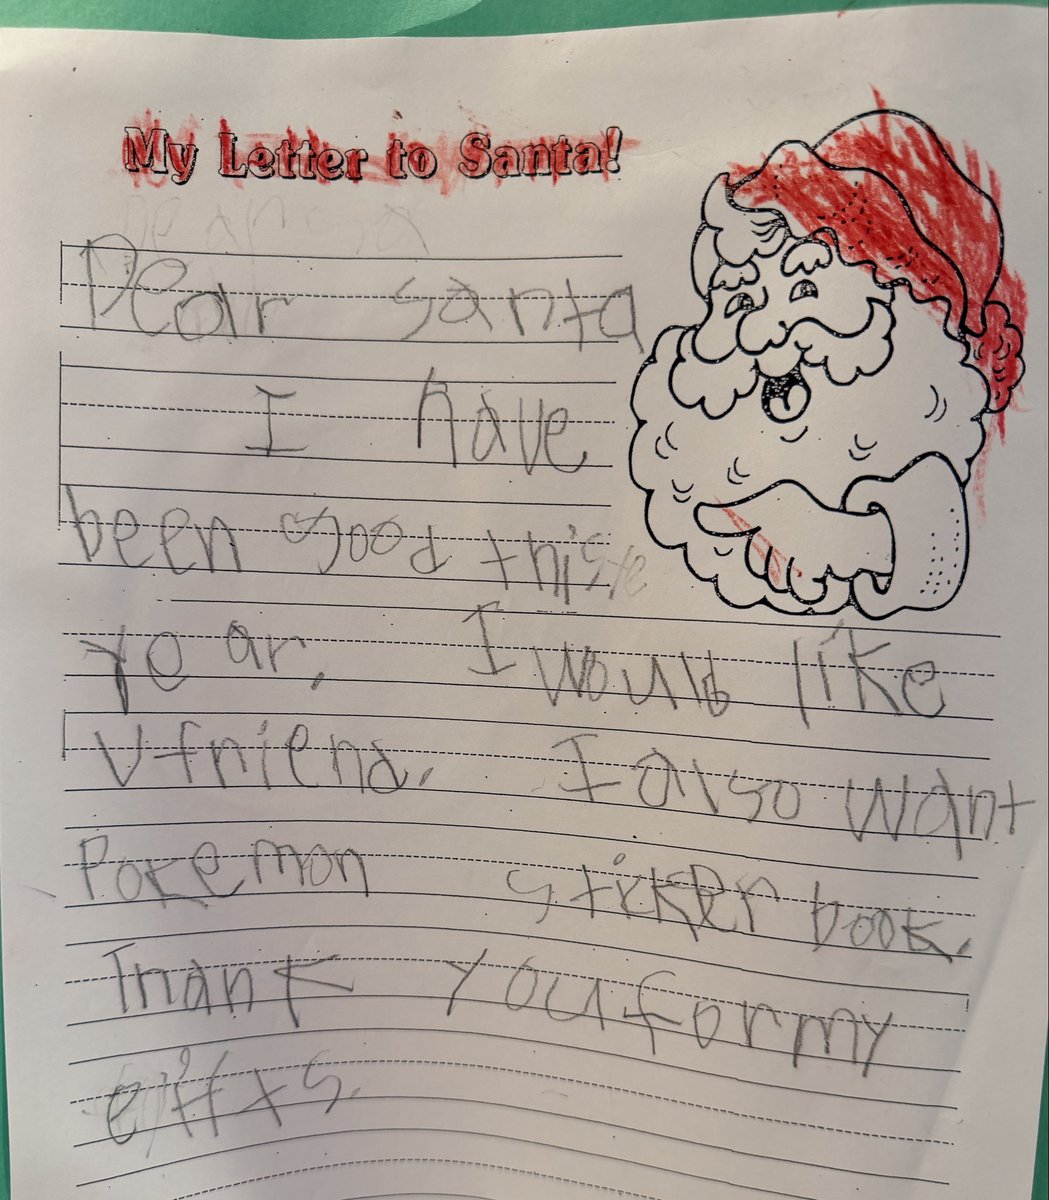 My Letter to Santa!
Dear santa
I have
been good this
year. I would like
V friend. I also want
Pokemon sticker book.
Thank you for my
gifts.